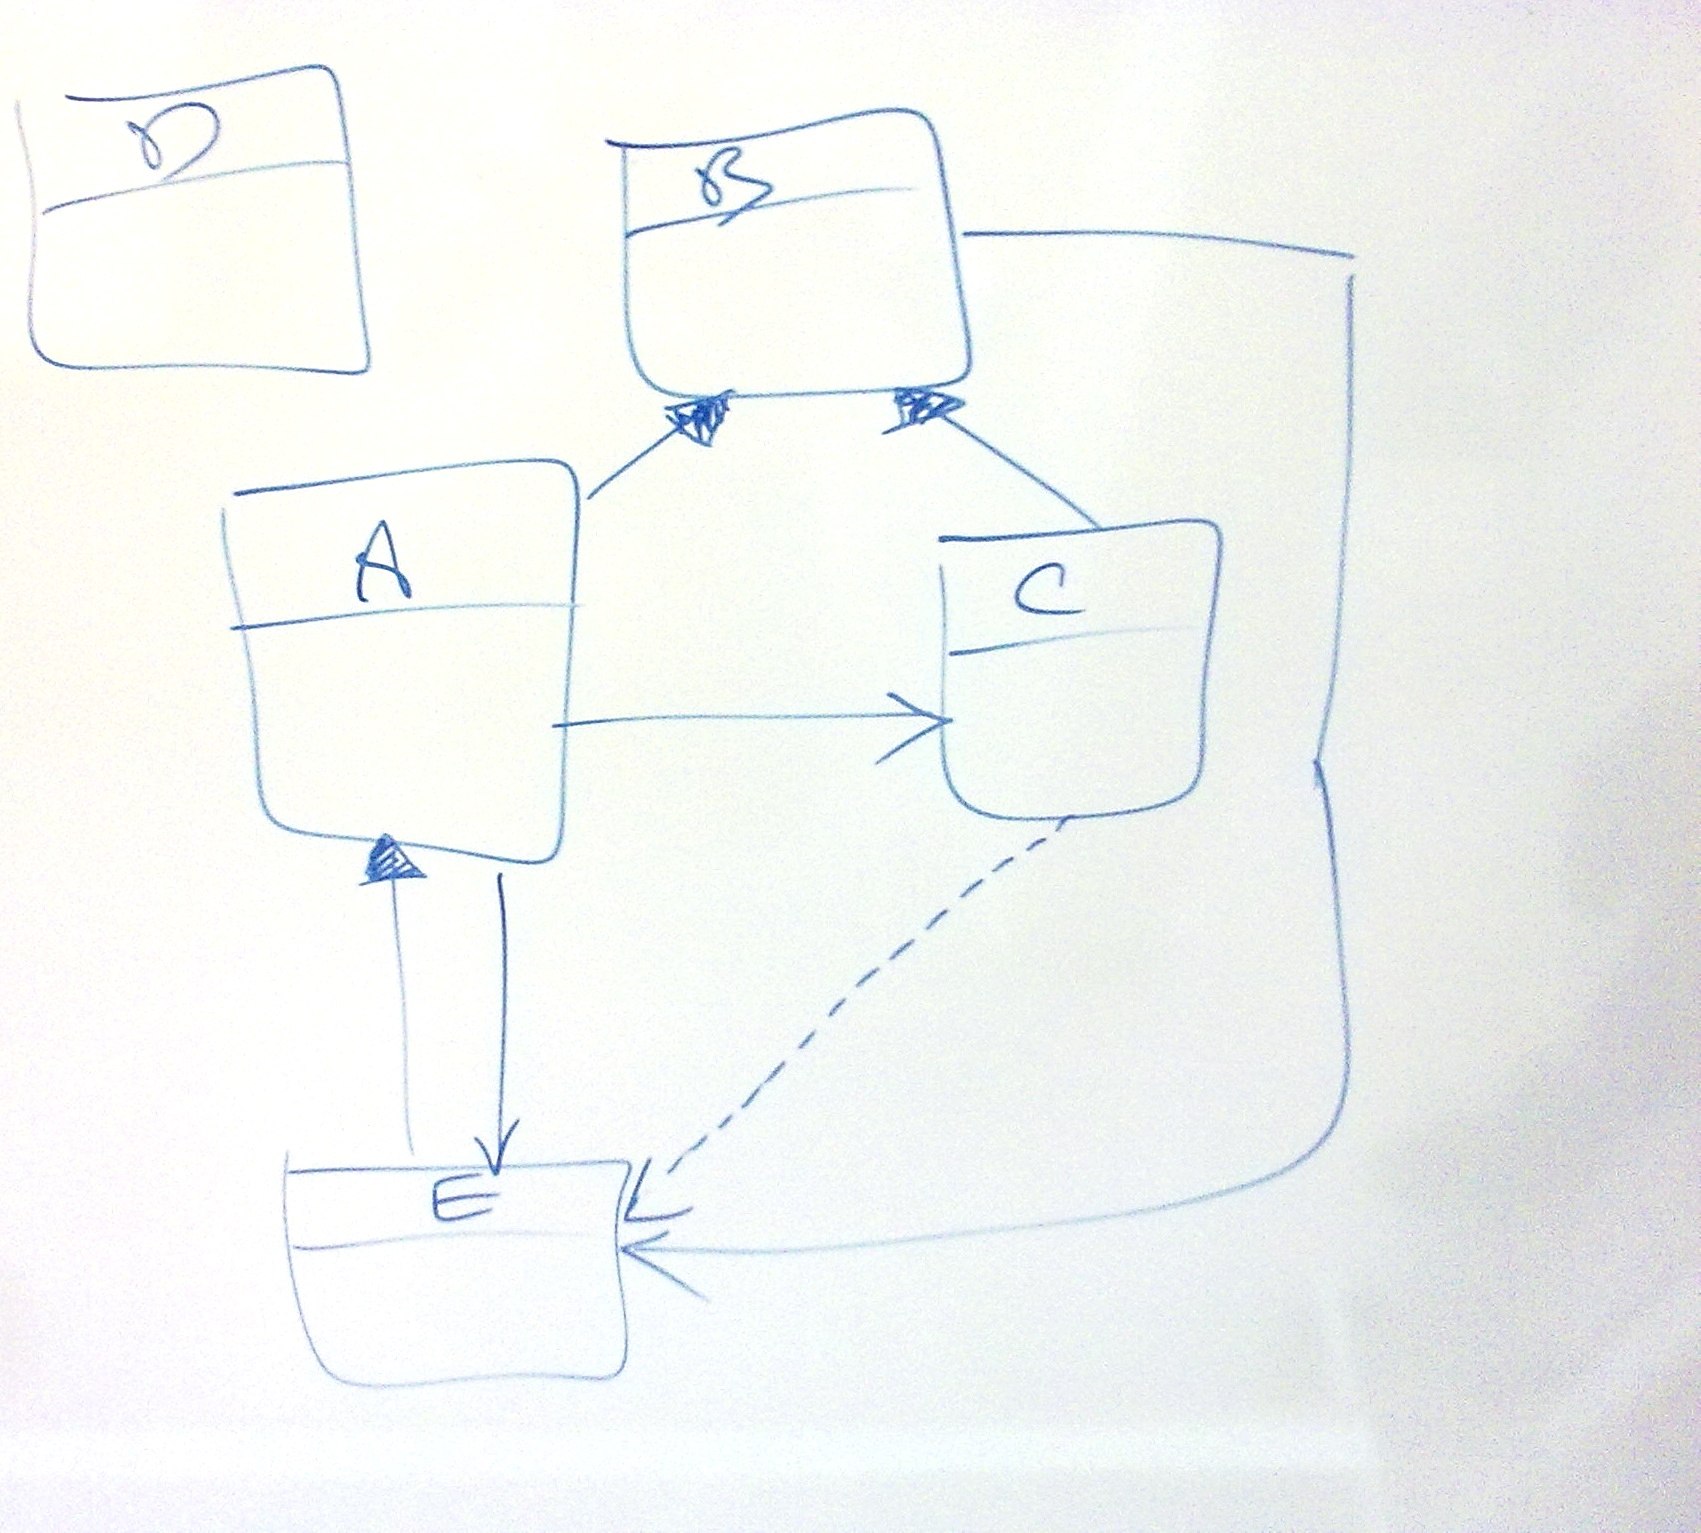 D
B
A
C
E